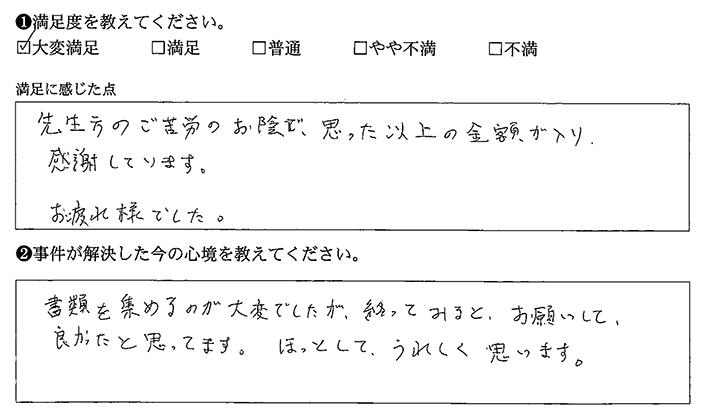 ❶満足度を教えてください。
☑大変満足 □満足 □普通 □やや不満 □不満
満足に感じた点
先生方のご苦労のお陰で、思った以上の金額が入り、
感謝しています。
お疲れ様でした。
❷事件が解決した今の心境を教えてください。
書類を集めるのが大変でしたが、終ってみると、お願いして、
良かったと思ってます。 ほっとして、うれしく思います。